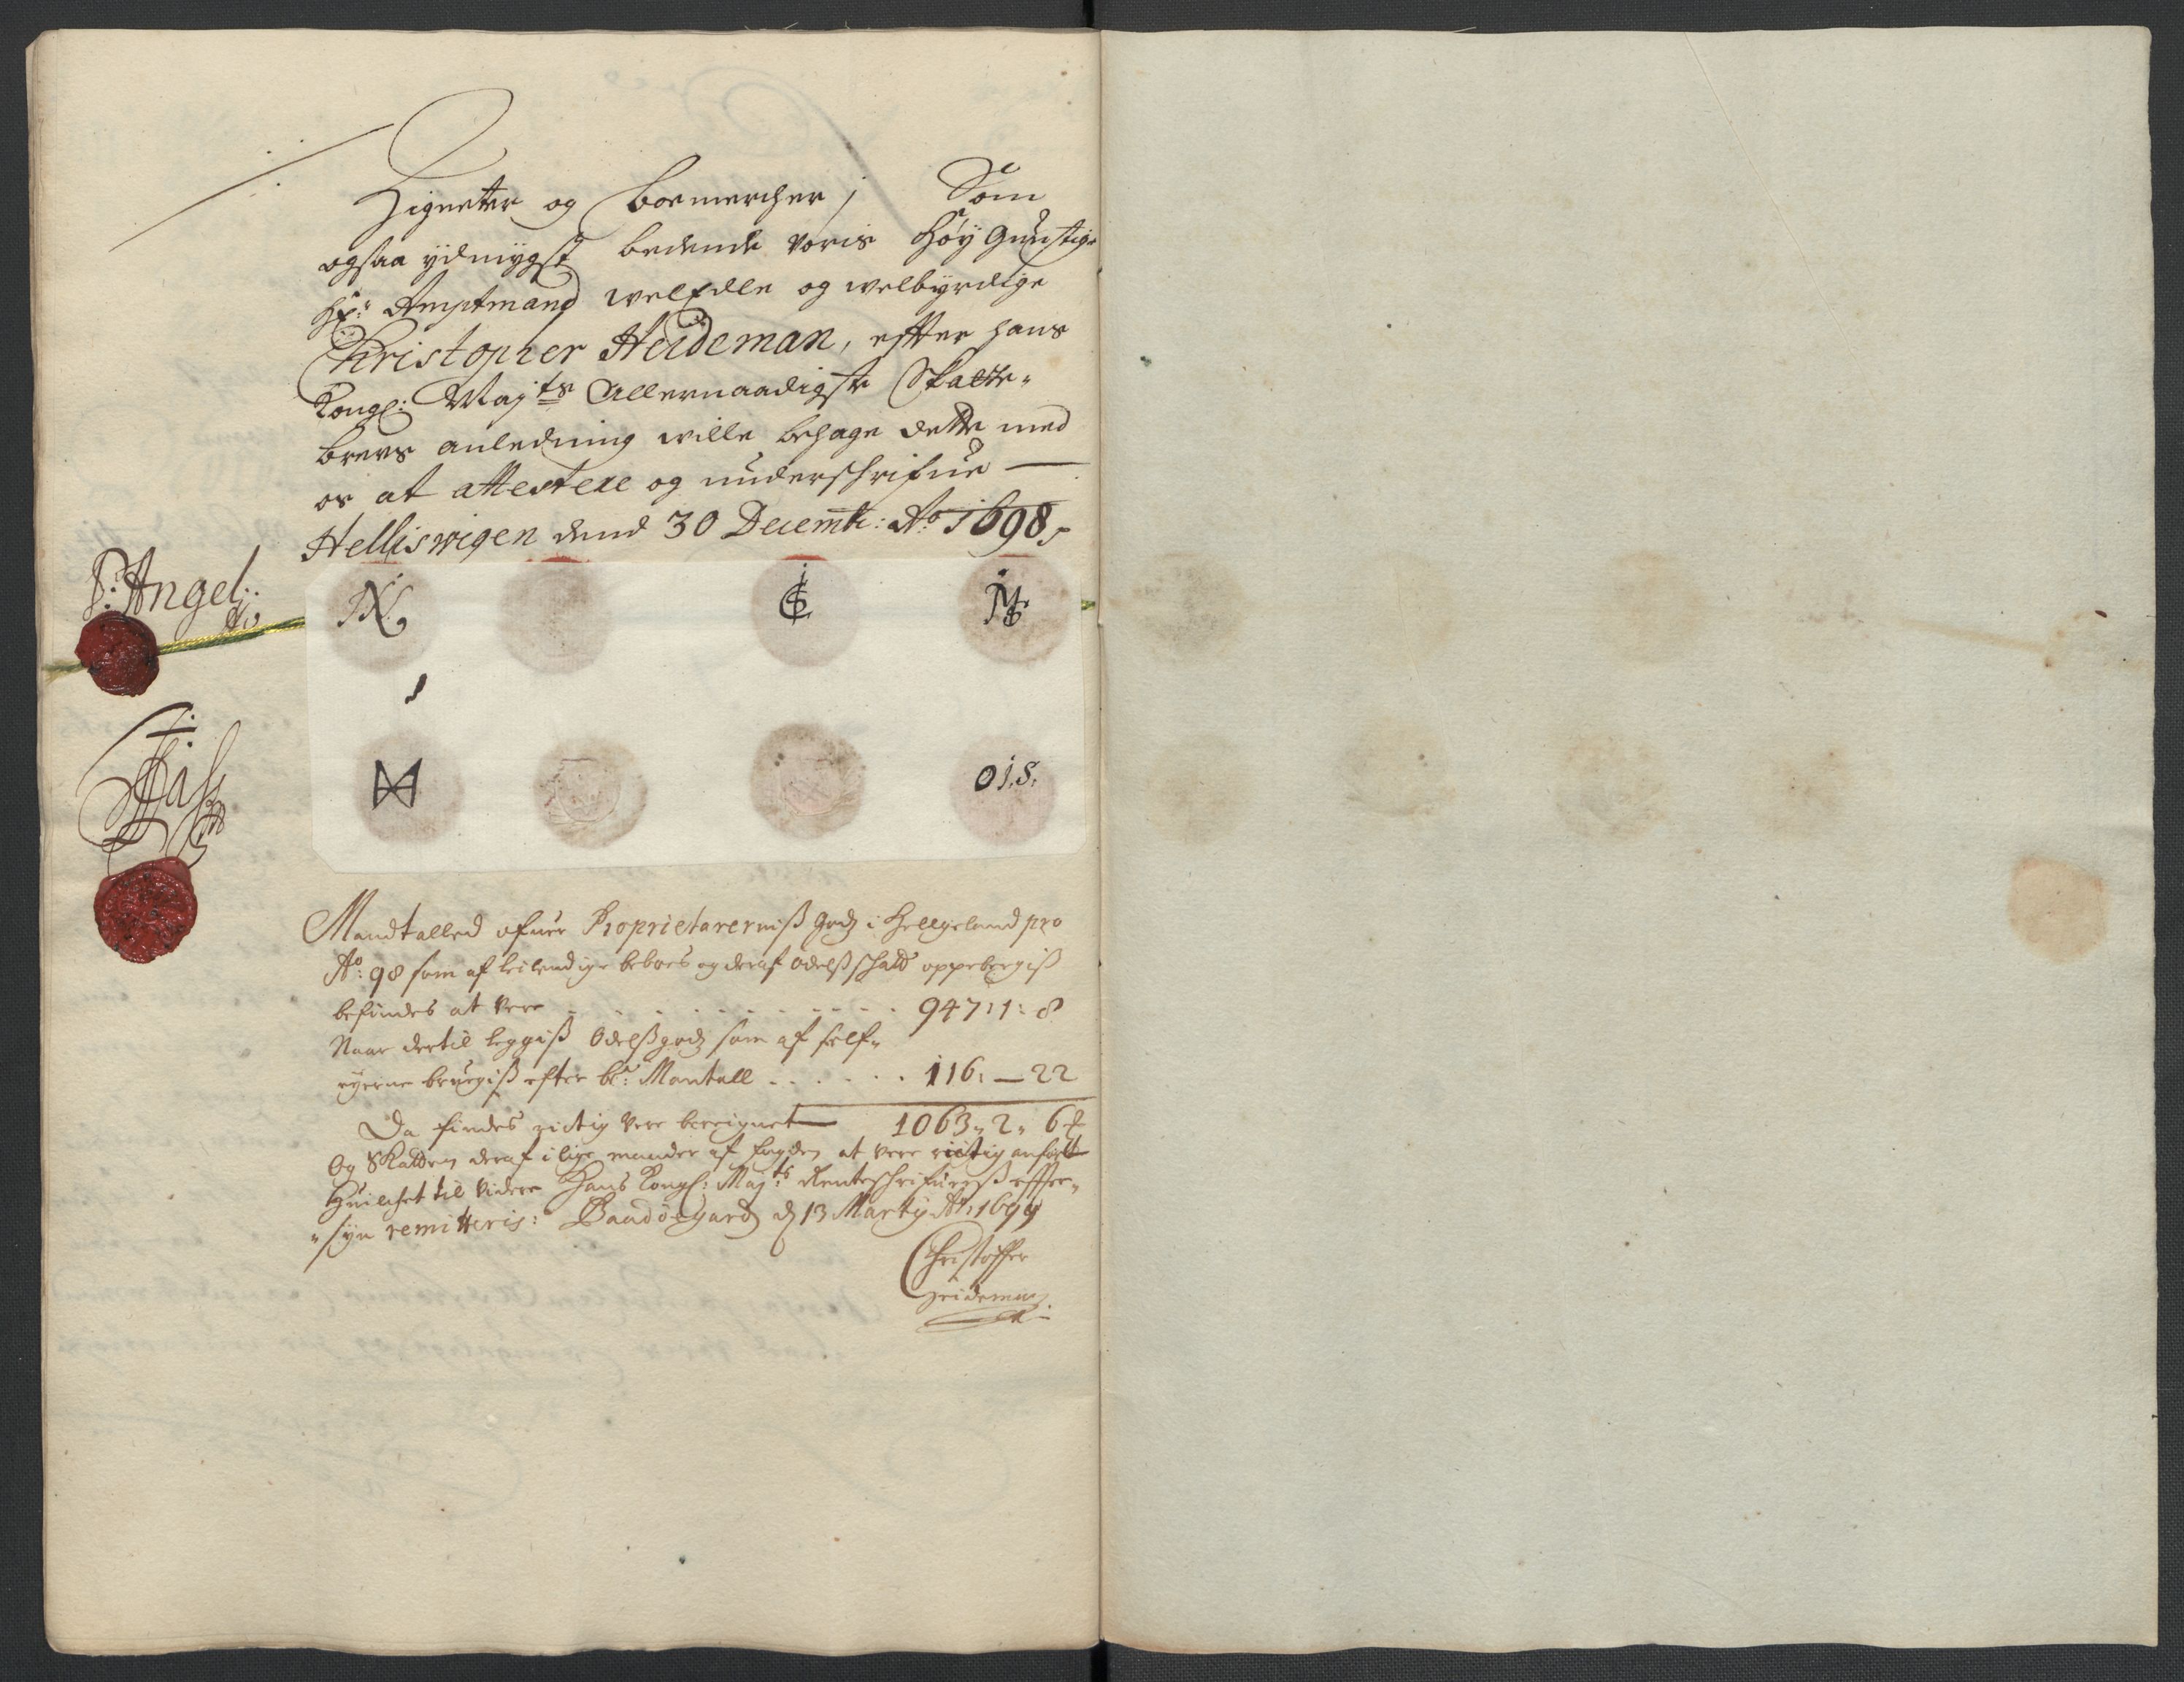 Zigneter og boemercher / Som
ogsaa ydmygst bedende voris Høy Gunstige
Hr: Amptmand welEdle og welbyrdige
Christopher Heideman, effter hans
Kongl: Mayts Allernaadigste Skatte„
brevs anledning wille behage dette med
os at attestere og underschrifue —
Helliswigen dend 30 Decemb: Ao 1698
P: Angel:
IN
CS
M
O I. S.
Mandtalled ofuer Proprietarerniß godz i Hellgeland pro
Ao: 98 som af leilendige beboes og deraf odelß schatt oppebergiß
befindes at vere . . . . . . . . . . 947: 1: 8
Naar dertil leggiß Odelßgodz som af self„
eyerne brugiß efter be: Mantall . . . . . . 116: — 22
Da findes rictig vere beregnet — 1063„ 2„ 6
Og Skatten deraf i lige maader af fogden at vere rictig anført
Huilchet til videre Hans Kongl: Mayts Renteschrifuerß effter„
„syn remitteris: Baadøegard d 13 Marty Ao: 1699
Christoffer
Heideman